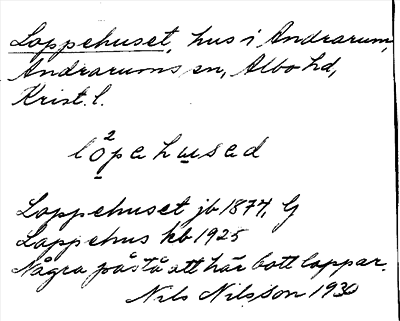 Loppehuset, hus i Andrarum,
Andrarums sn, Albo hd,
Krist. l.
2
lo̱pehu̱sed
Loppehuset jb 1874, G
Lappehus kb 1925
Några påstå att här bott lappar.
Nils Nilsson 1930